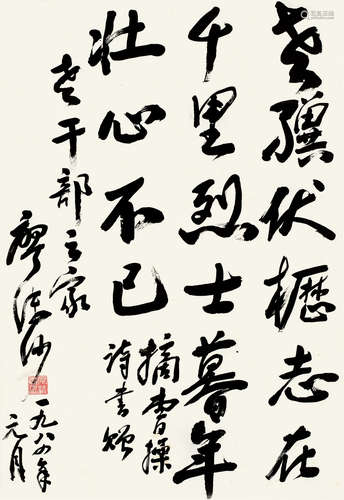 老骥伏枥志在
千里烈士暮年
壮心不已
摘曹操
诗书赠
老干部之家
廖沫沙
一九八四年
元月